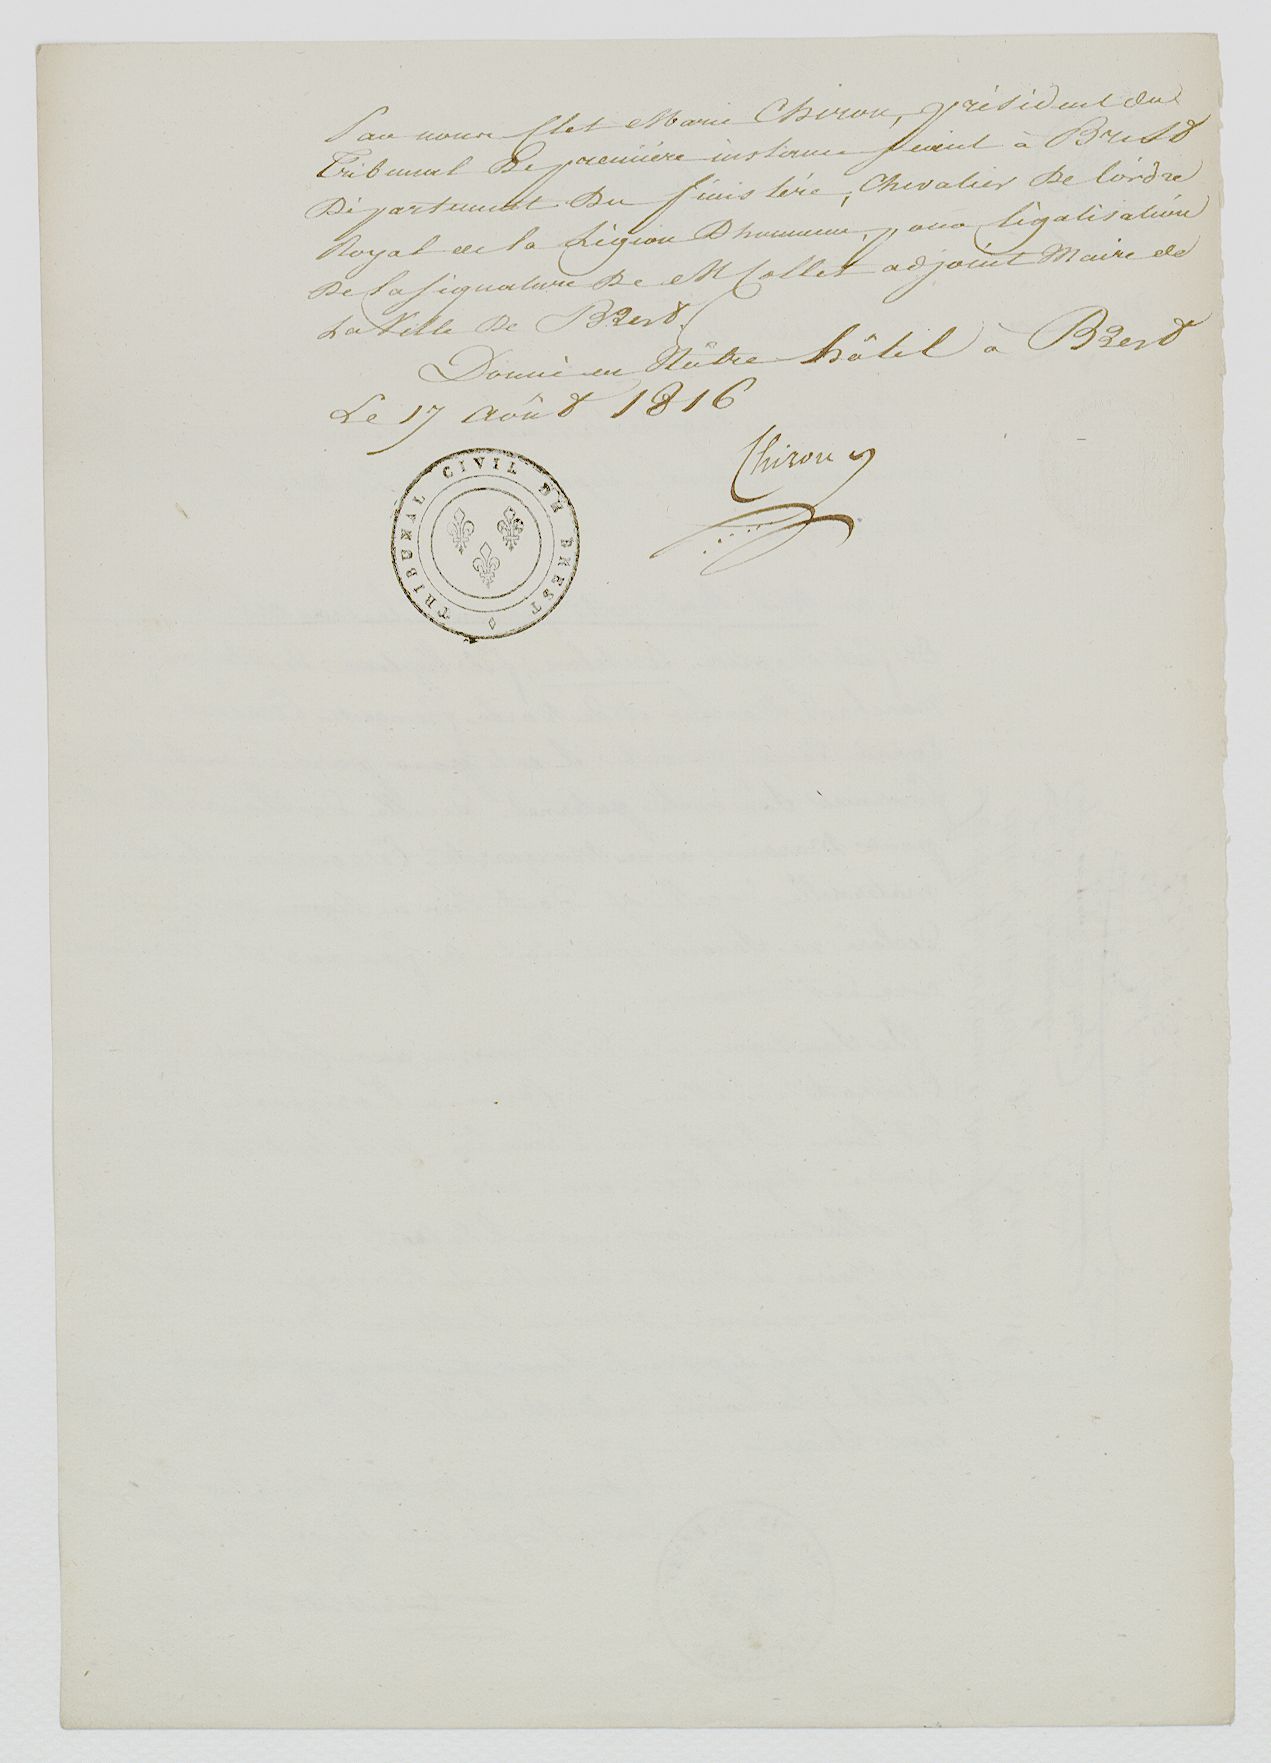 Par nous Clet Marie Chiron, président du
Tribunal De première instance séant à Brest
Département Du finistère, Chevalier De l'ordre
Royal de la Légion D'honneur, pour légalisation
De la signature De M Collet adjoint Maire de
La Ville De Brest.
Donné en Nôtre hôtel à Brest
Le 17 Août 1816
Chiron
TRIBUNAL CIVIL DE BREST